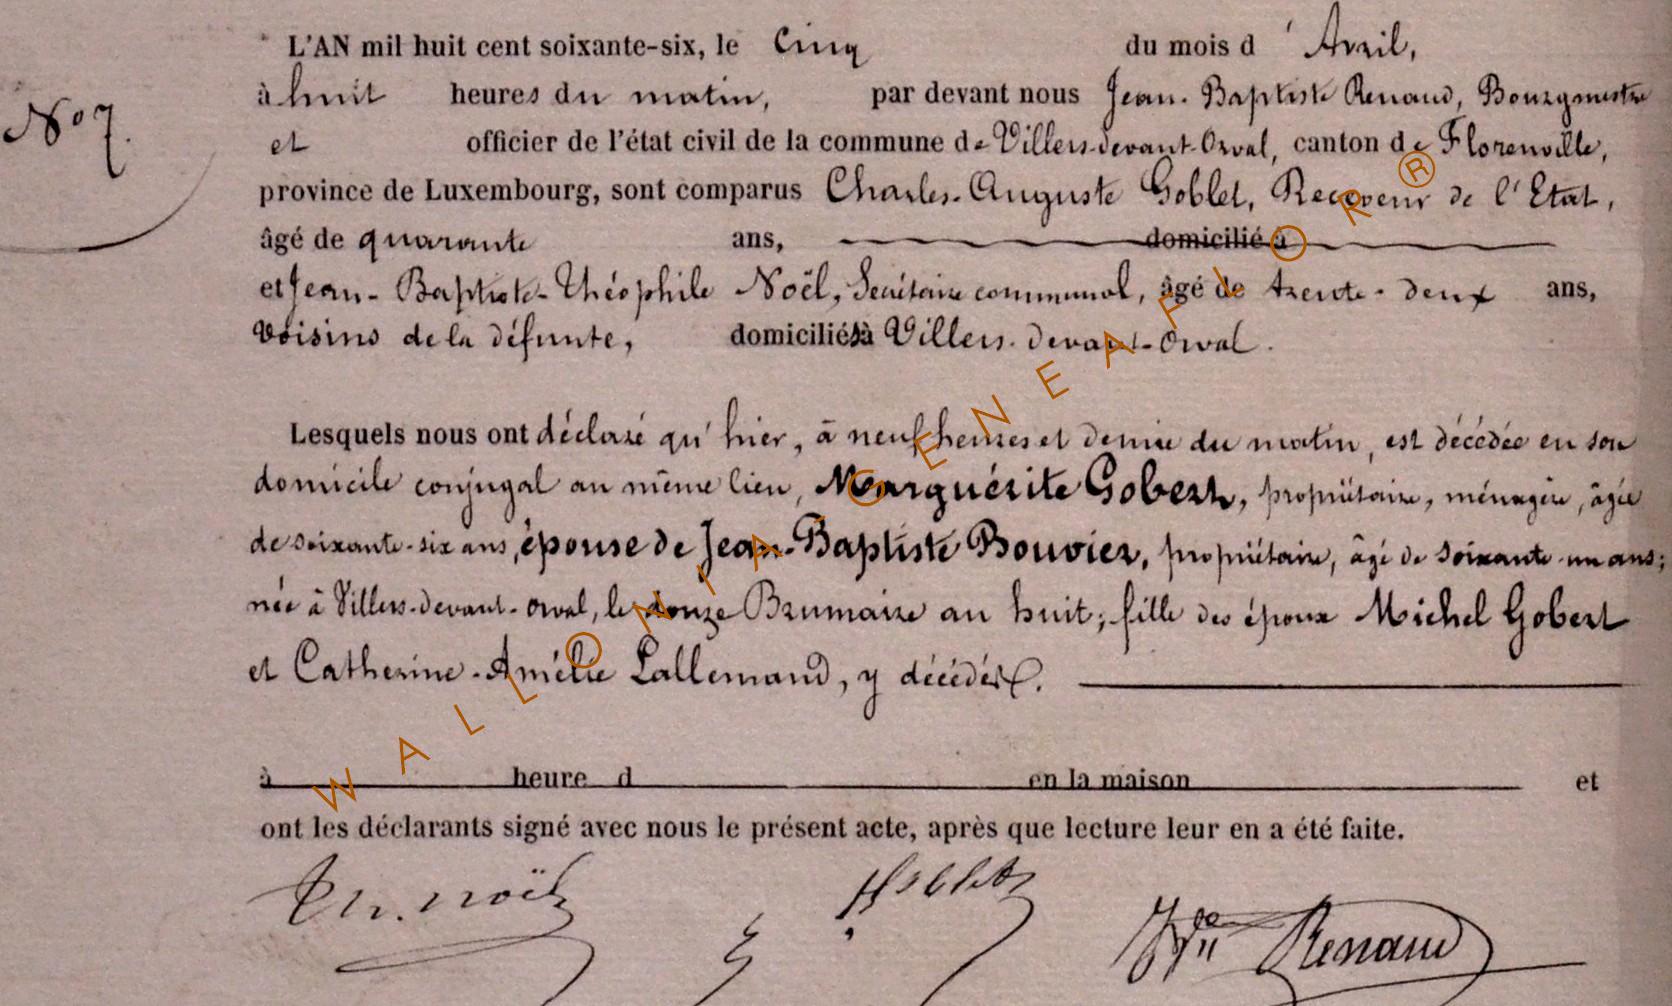 L'AN mil huit cent soixante-six, le Cinq du mois d'Avril,
à huit heures du matin, par devant nous Jean-Baptiste Renaud, Bourgmestre
N° 7.
et officier de l'état civil de la commune de Villers-devant-Orval, canton de Florenville,
province de Luxembourg, sont comparus Charles-Auguste Goblet, Receveur de l'Etat,
âgé de quarante ans, domicilié à
et Jean-Baptiste-Théophile Noël, Secrétaire communal, âgé de trente-deux ans,
Voisins de la défunte, domiciliés à Villers-devant-Orval.
Lesquels nous ont déclaré qu'hier, à neuf heures et demie du matin, est décédée en son
domicile conjugal au même lieu, Marguérite Gobert, propriétaire, ménagère, âgée
de soixante-six ans, épouse de Jean-Baptiste Bouvier, propriétaire, âgé de soixante-un ans;
née à Villers-devant-Orval, le douze Brumaire an huit; fille des époux Michel Gobert
et Catherine-Amélie Lallemand, y décédés.
à heure d en la maison et
ont les déclarants signé avec nous le présent acte, après que lecture leur en a été faite.
Th. Noël Goblet Renaud
WALLONIA-GENEAFLOR®